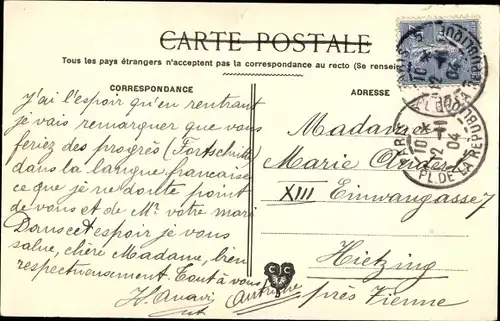 CARTE POSTALE
Tous les pays étrangers n'acceptent pas la correspondance au recto (Se renseigner
CORRESPONDANCE
ADRESSE
J'ai l'espoir qu'en rentrant
je vais remarquer que vous
feriez des progrès (Fortschritte)
dans la langue francaise
ce que je ne doute point
de vous et de Mr votre mari
Dans cet espoir je vous
salue, chère Madame, bien
respectueusement. Tout à vous
Madame
Marie
XIII Einwanggasse 7
Hietzing
près Vienne
Autriche
PARIS
10
2 -10
04
PL. DE LA REPUBLIQUE
C C